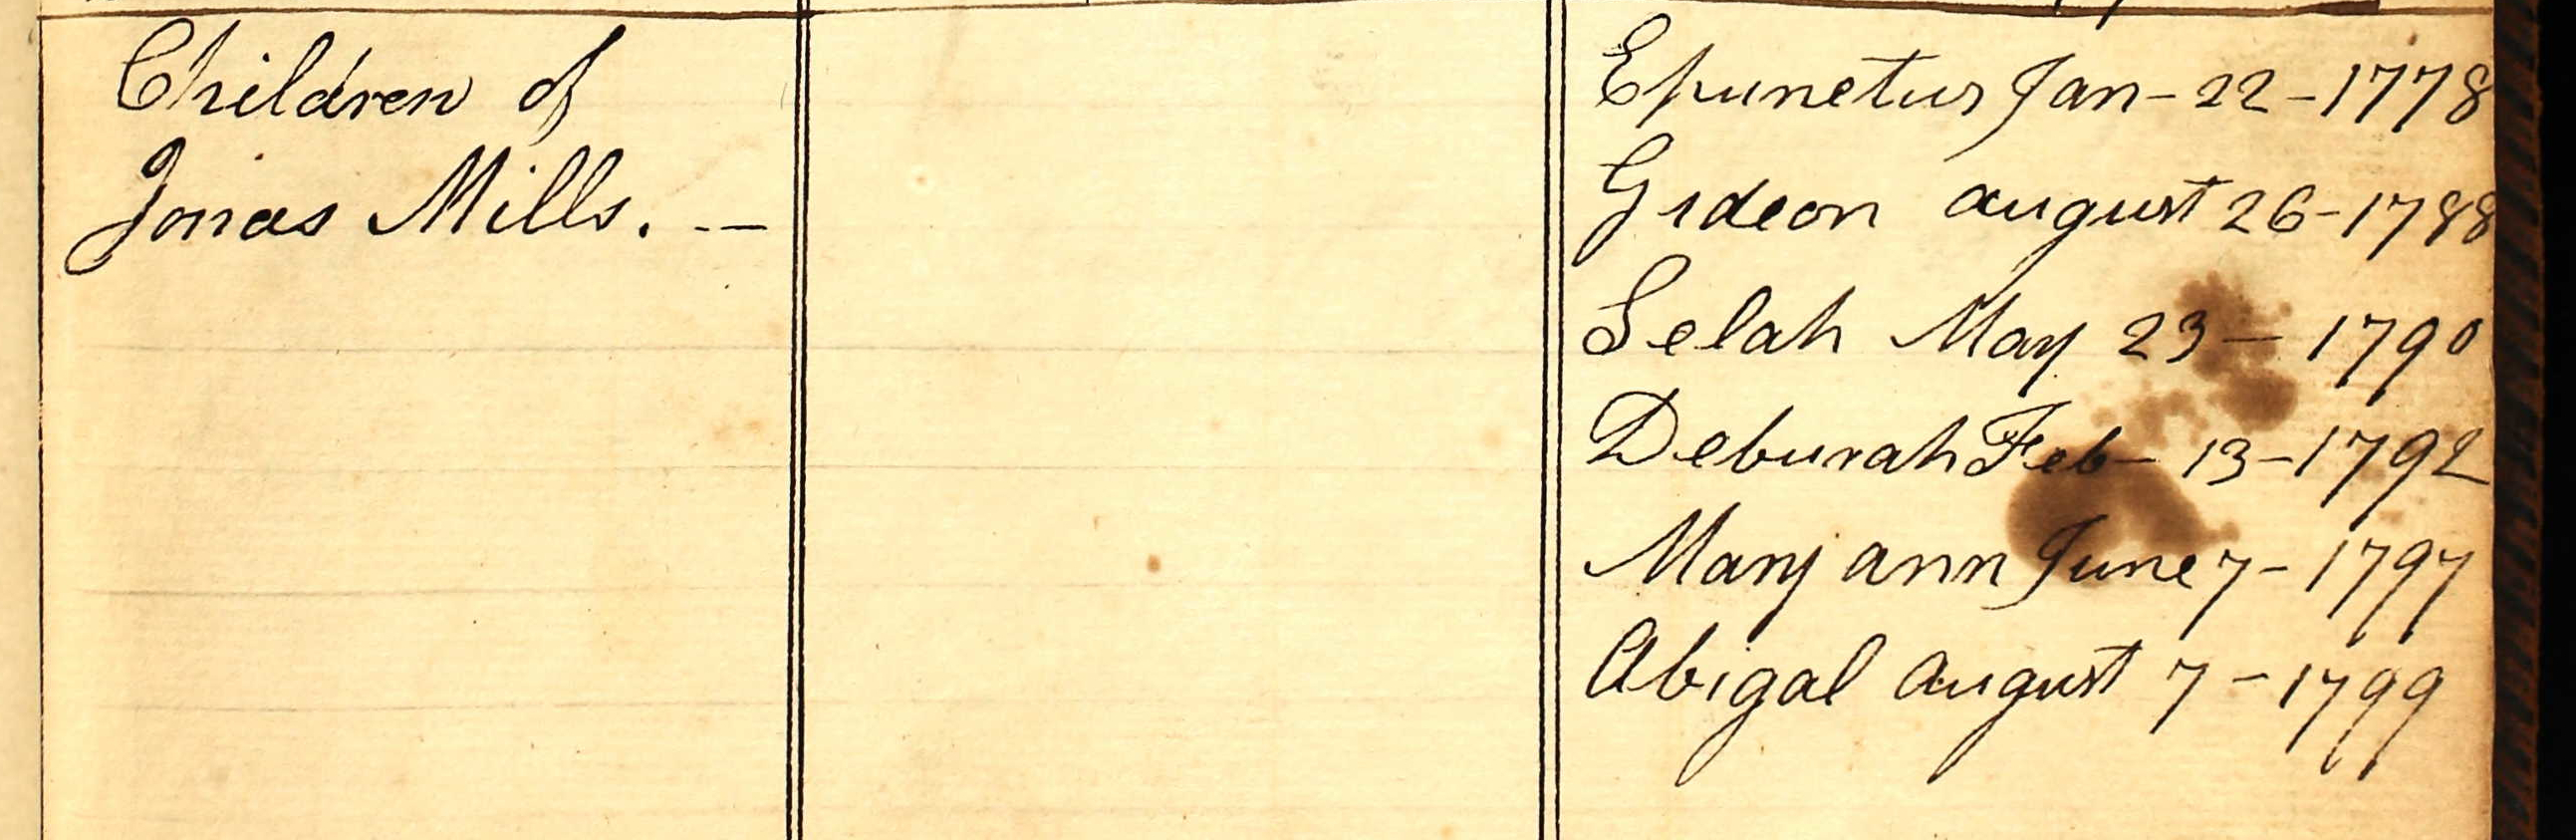 Children of
Jonas Mills. --
Epunetus Jan - 22 - 1778
Gideon august 26 - 1788
Selah May 23 - 1790
Deburah Feb - 13 - 1792
Mary ann June 7 - 1797
Abigal August 7 - 1799